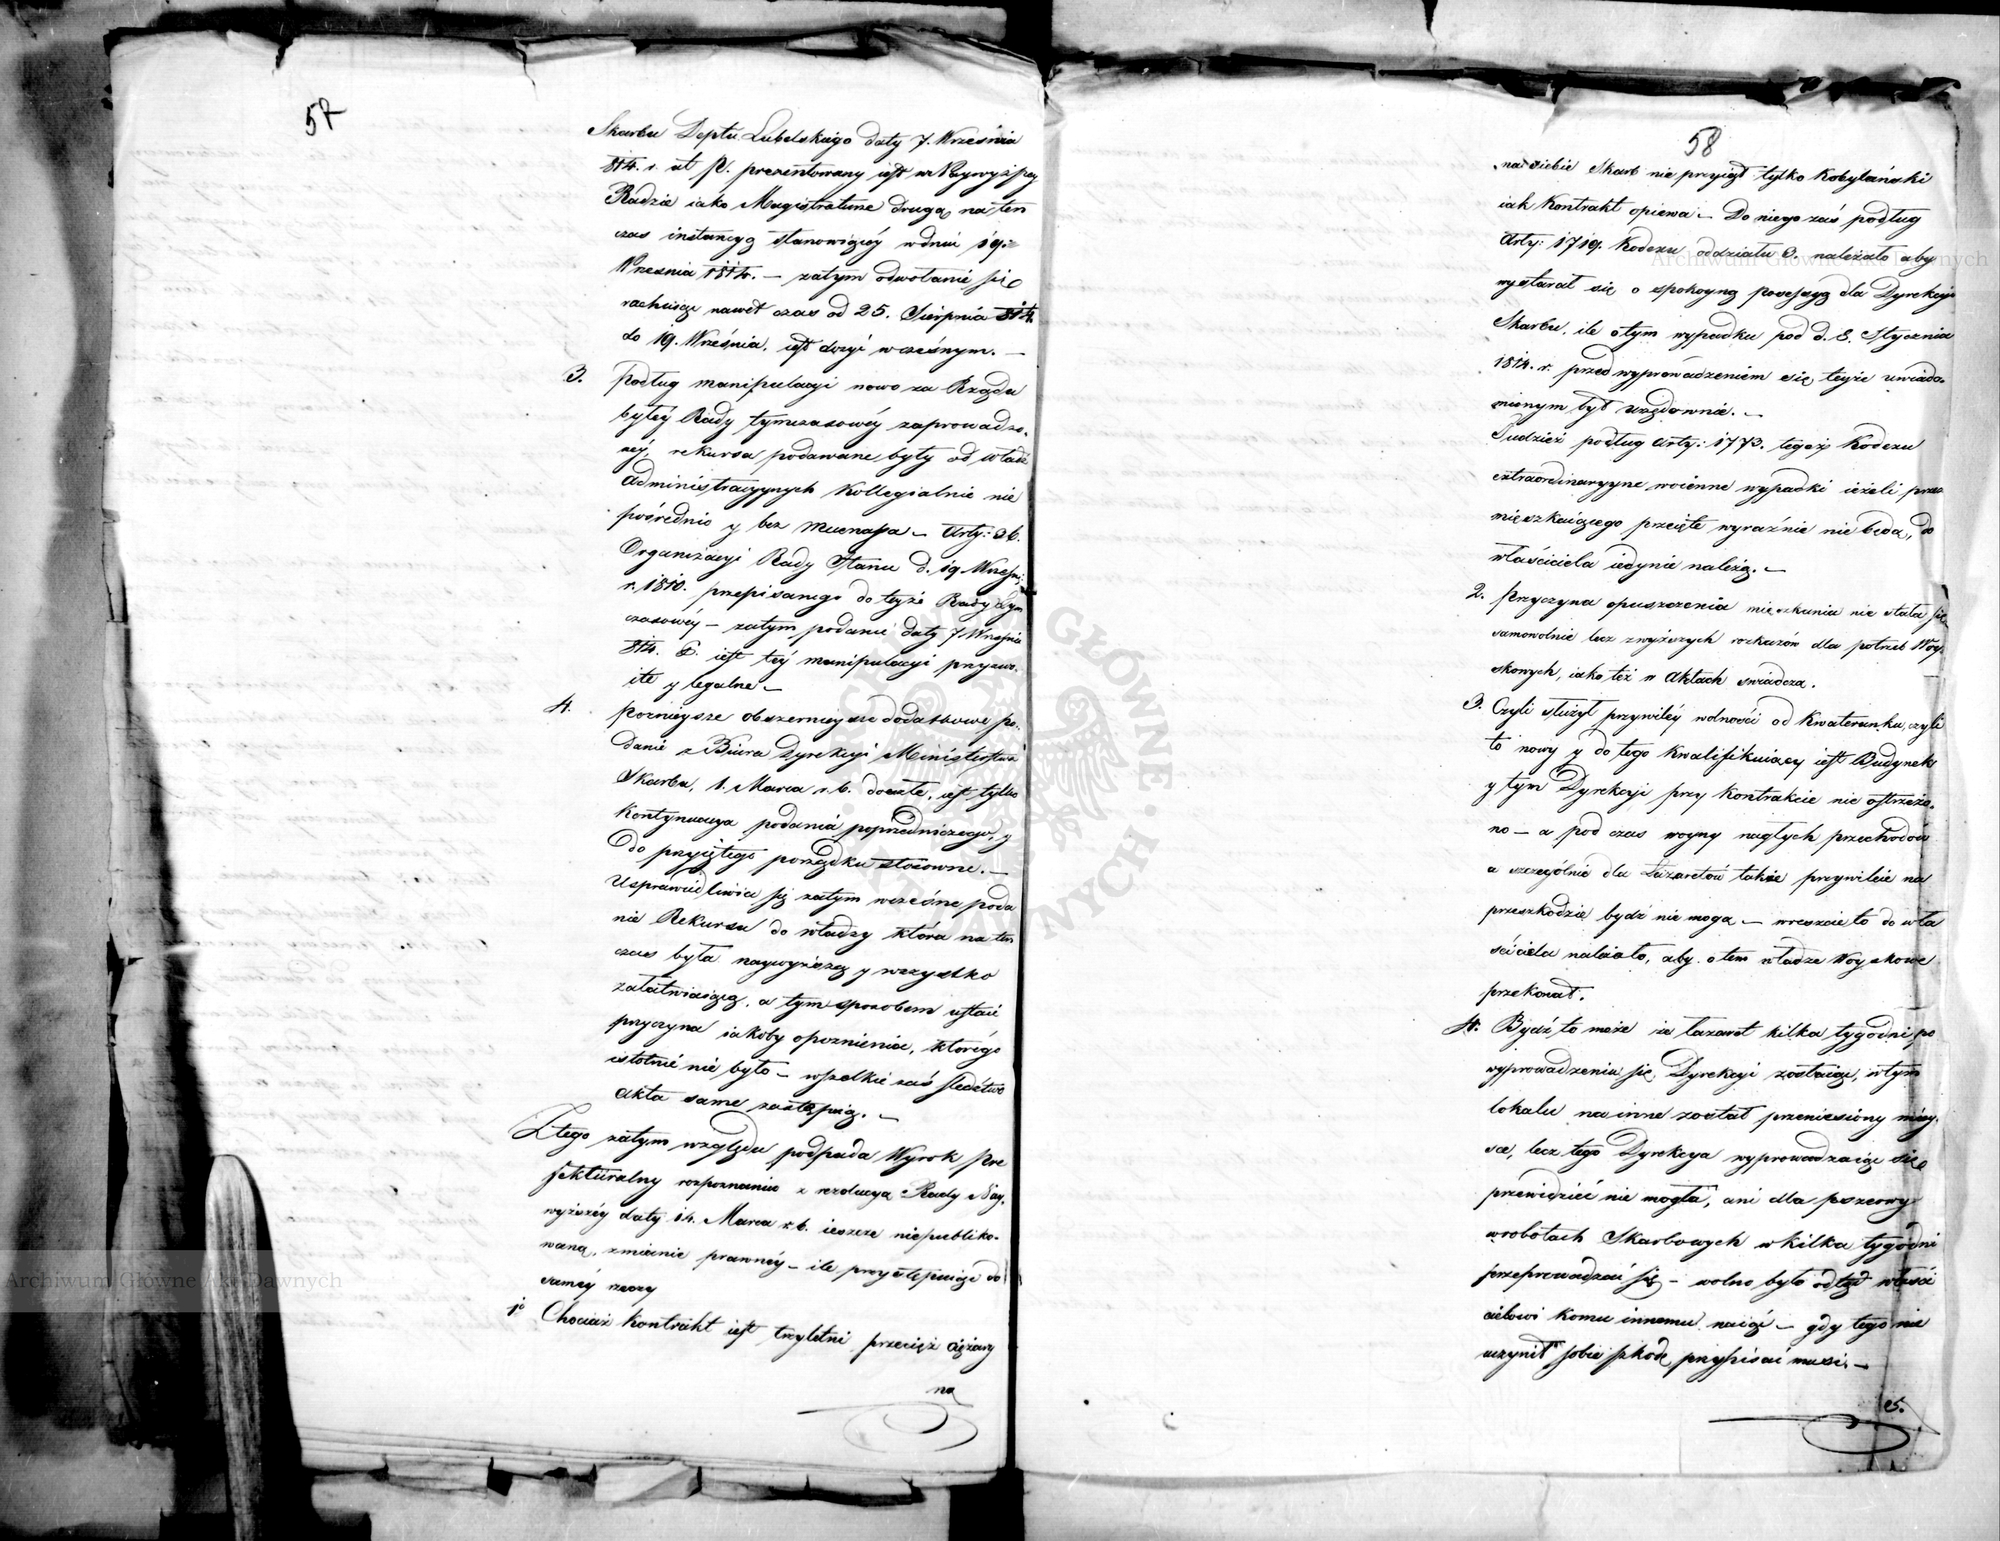 57
Skarbu Deptu Lubelskiego daty 7. Września
814. r. ut P. prezentowany iest w Naywyższey
Radzie iako Magistraturze drugą na ten
czas instancyą stanowiącéy w dniu 19.
Września 1814. – zatym odwołanie się
rachuiąc nawet czas od 25. Sierpnia 814.
do 19. Września, iest dosyć wczesnym. –
3. podług manipulacyi nowo za Rządu
byłéy Rady tymczasowéy zaprowadzo-
néy, rekursa podawane były od władz
administracyynych kollegialnie nie
pośrednio y bez – Arty: 26.
Organizacyi Rady Stanu d. 19. Wrześni
r. 1810. przepisanego do teyże Rady tym
czasowéy – zatym podanie daty 7. Wrześnie
814. iest téy manipulacyi przyzwo-
ite y legalne –
4. poznieysze obszernieysze dodatkowe po-
danie z Biura Dyrekcyi Ministerstwa
Skarbu, 1. Marca r. b. doszłe, iest tylko
kontynuacya podania poprzedniczego, y
do przyiętego porządku stosowne. –
Usprawiedliwia się zatym wczesne poda
nie Rekursu do władzy która na ten
czas była naywyższą y wszystko
załatwiaiącą, a tym sposobem ustaie
przyczyna iakoby opoznienia, którégo
istotnie nie było – wszelkie zaś śledztwo
Akta same zastępuią. –
Z tego zatym względu podpada Wyrok Pre
fekturalny rozpoznaniu z rezolucyą Rady Nay.
wyższéy daty 14. Marca r. b. ieszcze niepubliko-
waną, zmianie prawnéy – ile przystępuiąc do
saméy rzeczy
1o Chociaż kontrakt iest trzyletni przecięż ciężary
na
58
na siebie Skarb nie przyiął tylko Kobylański
iak Kontrakt opiewa – Do niego zaś podług
Arty: 1719. Kodexu oddziału 3. należało aby
wystarał się o spokoyną possessyą dla Dyrekcyi
Skarbu, ile o tym wypadku pod d. 8. Stycznia
1814. r. przed wyprowadzeniem się teyże uwiado-
mionym był urzędownie. –
Tudzież podług Arty: 1773. tegoż Kodexu
extraordynaryyne woienne wypadki ieżeli przez
mieszkaiącego przeięte wyraźnie nie będą, do
właściciela iedynie należą. –
2. Przyczyna opuszczenia mieszkania nie stała się
samowolnie lecz z wyższych rozkazów dla potrzeb Woy-
skowych, iako też w Aktach świadczą.
3. Czyli służył przywiléy wolności od Kwaterunku, czyli
to nowy y do tego kwalifikuiący iest Budynek
y tym Dyrekcyi przy kontrakcie nie ostrzeżo-
no – a pod czas woyny nagłych przechodów
a szczególnie dla Lazaretów takie przywileie na
przeszkodzie bydź nie mogą – wreszcie to do wła
ściciela należało, aby o tem władze Woyskowe
przekonał.
4. Bydź to może że lazaret kilka tygodni po
wyprowadzeniu się Dyrekcyi zostaiąc, w tym
lokalu na inne został przeniesiony miey-
sce, lecz tego Dyrekcya wyprowadzaiąc się
przewidzieć nie mogła, ani dla przerwy
w robotach Skarbowych w kilka tygodni
przeprowadzać się – wolno było odtąd właści
cielowi komu innemu naiąć – gdy tego nie
uczynił sobie szkodę przypisać musi. –
5.